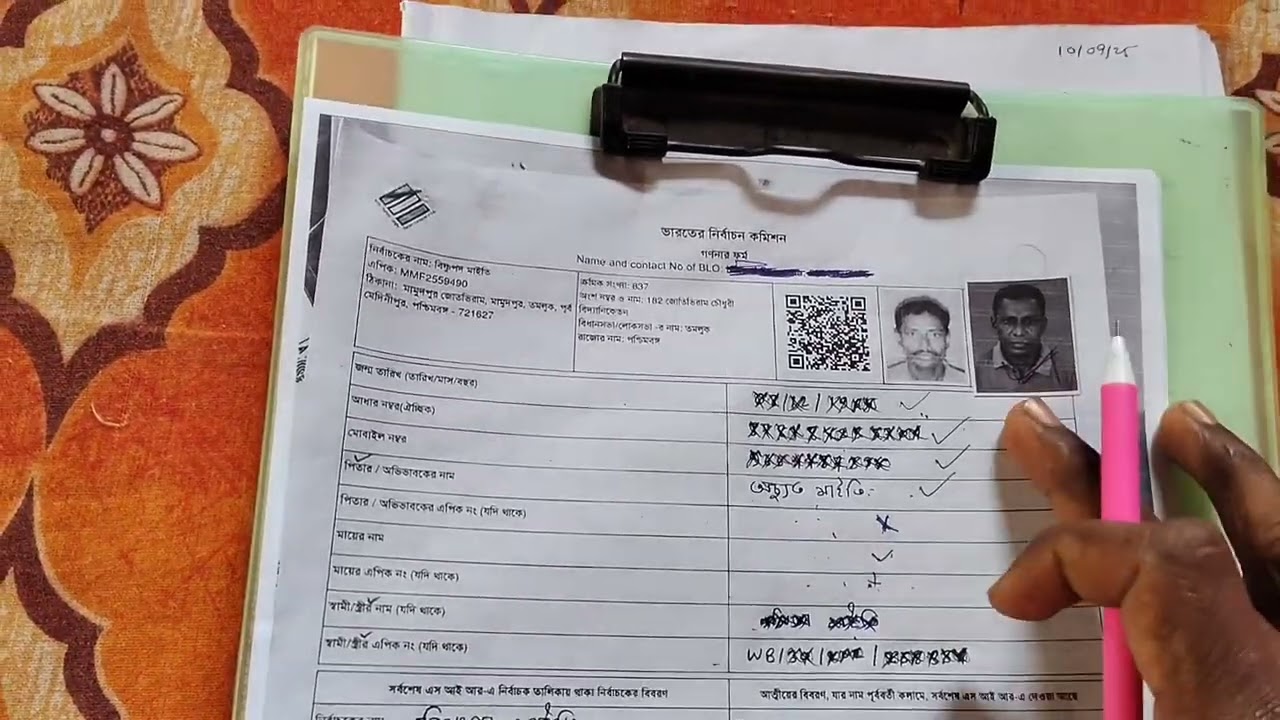 10/09/25
ভারতের নির্বাচন কমিশন
গণনার ফর্ম
Name and contact No of BLO:
নির্বাচকের নাম: বিষ্ণুপদ মাইতি
এপিক: MMF2559490
ঠিকানা: মামুদপুর জোতভিরাম, মামুদপুর, তমলুক, পূর্ব
মেদিনীপুর, পশ্চিমবঙ্গ - 721627
ক্রমিক সংখ্যা: 837
অংশ নম্বর ও নাম: 182 জোতভিরাম চৌধুরী
বিদ্যানিকেতন
বিধানসভা/লোকসভা -র নাম: তমলুক
রাজ্যের নাম: পশ্চিমবঙ্গ
জন্ম তারিখ (তারিখ/মাস/বছর)
আধার নম্বর(ঐচ্ছিক)
মোবাইল নম্বর
পিতার / অভিভাবকের নাম অচ্যুত মাইতি
পিতার / অভিভাবকের এপিক নং (যদি থাকে)
মায়ের নাম
মায়ের এপিক নং (যদি থাকে)
স্বামী/স্ত্রীর নাম (যদি থাকে)
স্বামী/স্ত্রীর এপিক নং (যদি থাকে) WB/
সর্বশেষ এস আই আর-এ নির্বাচক তালিকায় থাকা নির্বাচকের বিবরণ
আত্মীয়ের বিবরণ, যার নাম পূর্ববর্তী কলামে, সর্বশেষ এস আই আর-এ দেওয়া আছে
নির্বাচকের নাম